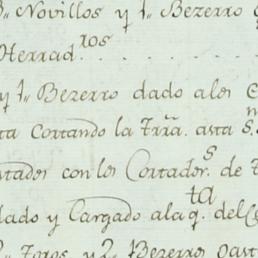 Novillos y 1,, Bezerro
Herrad.ros
y 1,, Bezerro dado a los
Cortando la Trra. asta
con los Cortador.s de
dado y Cargado a la q.ta del
Toros, y 2,, Bezerros